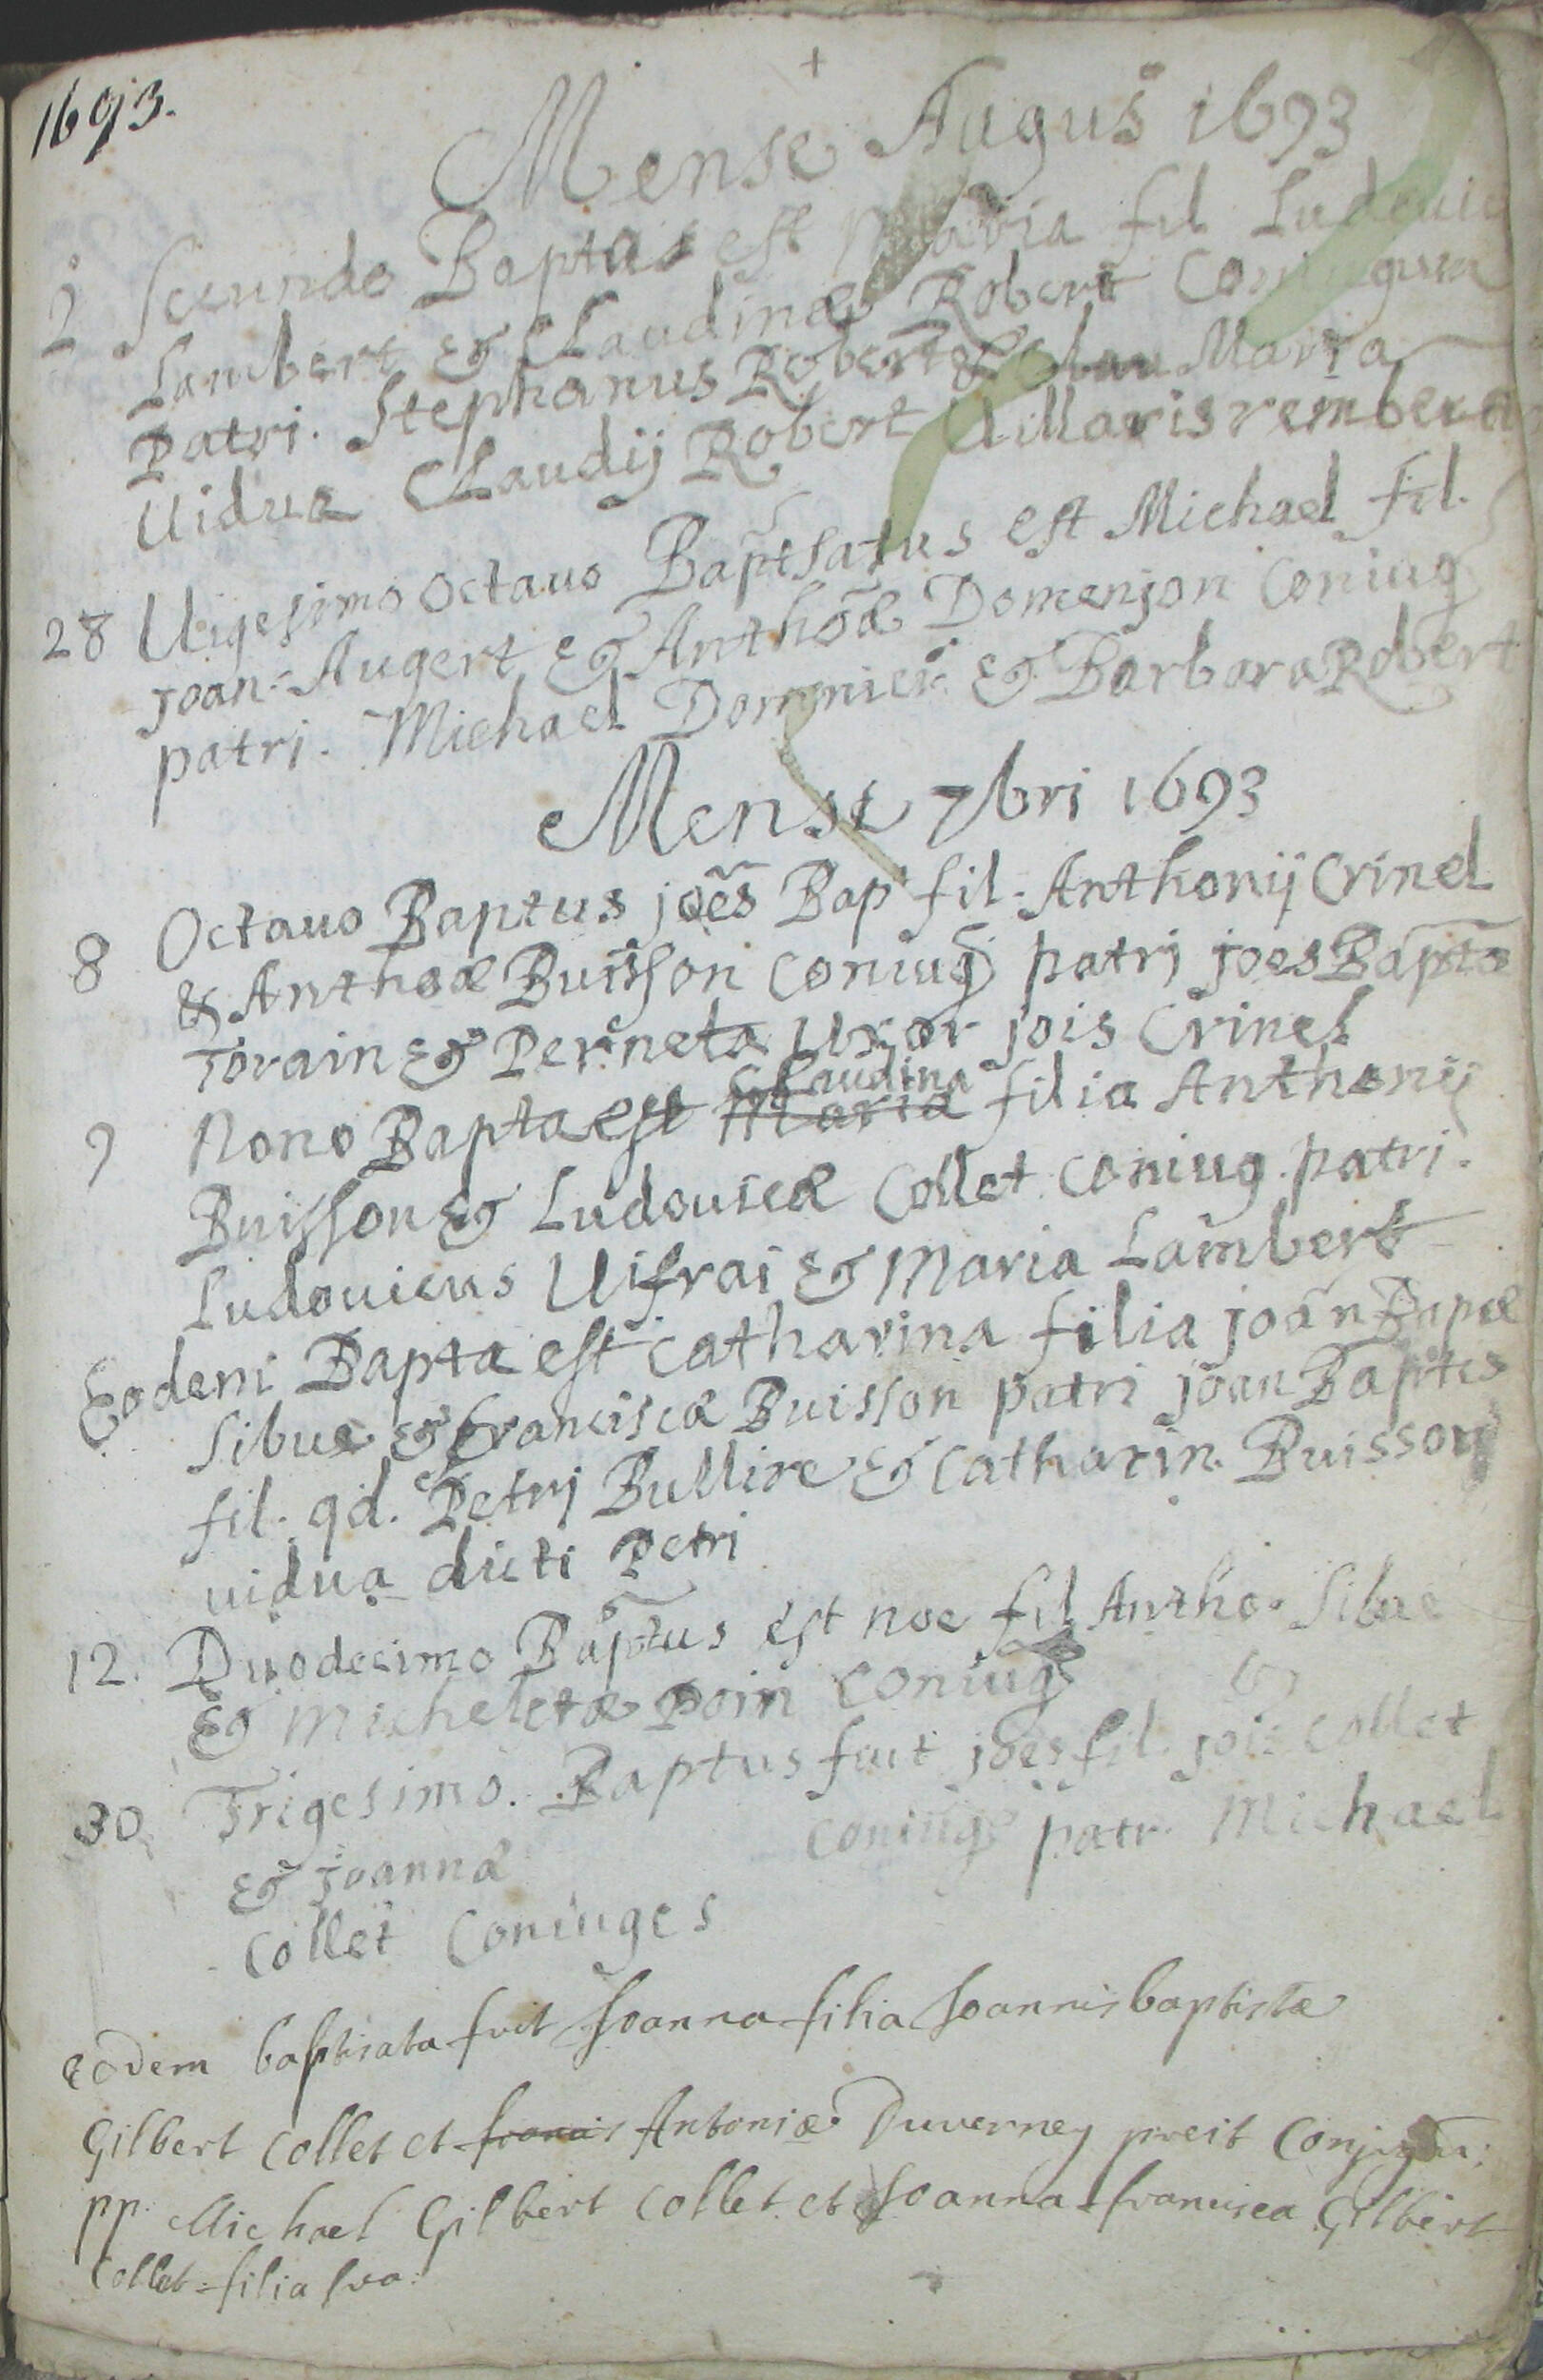 1693.
Mense Augus 1693
2 Secundo Baptas est Maria fil Ludouic
Lambert & Claudinæ Robert Coniugum
Patri. Stephanus Robert & Maria
Uidua Claudij Robert Uillarisrembert
28 Uigesimo octauo Baptsatus est Michael fil.
joan. Augert & Anthoæ Domenjon Coniug
patrj. Michael Dommier & Barbara Robert
Mense 7bri 1693
8 Octauo Baptus joes Bap fil. Anthonij Crinel
& Anthoæ Buisson Coniug patrj joes Bapta
Torain & Perneta uxor jois Crinel
Claudina
9 Nono Bapta est Maria filia Anthonij
Buisson & Ludouicæ Collet Coniug. patri.
Ludouicus Uifrai & Maria Lambert
Eodem Bapta est Catharina filia joan Bapæ
Sibue & Franciscæ Buisson patri joan Baptes
fil. qd. Petrj Bullire & Catharin. Buisson
uidua dicti Petri
12. Duodecimo Baptus est noe fil Antho. Sibue
& Micheletæ Poin Coniug
30 Trigesimo. Baptus fuit joes fil. jois Collet
& joannæ Coniug patr. Michael
Collet Coniuges
eodem baptisata fuit Joanna filia Joannis baptistæ
Gilbert Collet et francis Antoniæ Duverney preit Conjugum;
pp. Michael Gilbert Collet et Joanna francisca Gilbert
Collet filia sua.